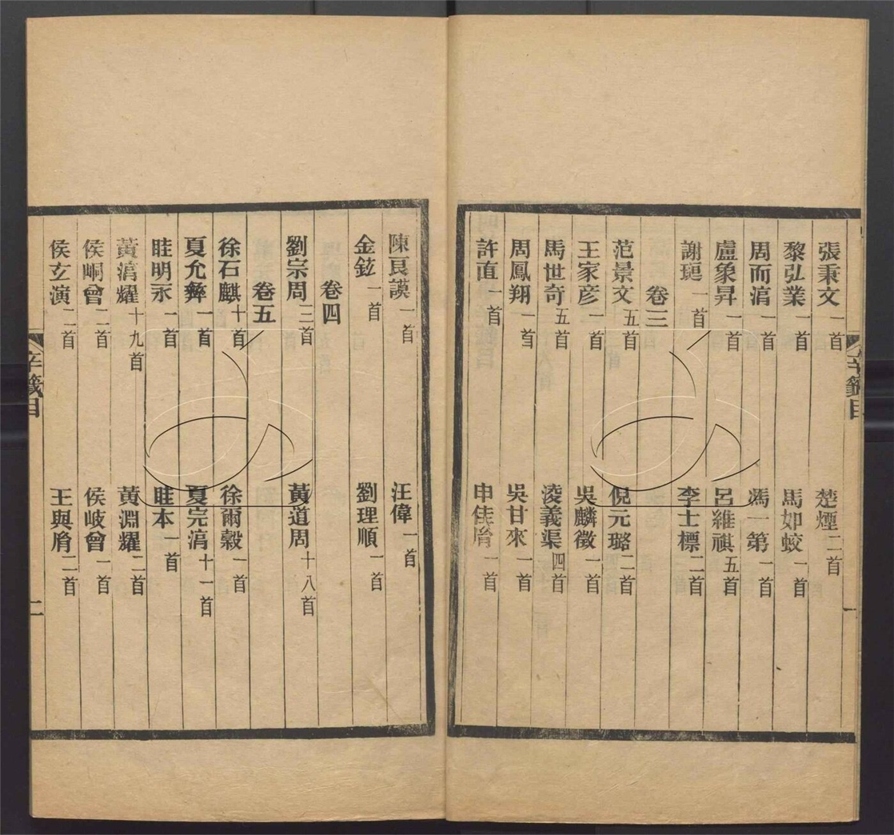 張秉文一首　楚煙二首
黎弘業一首　馬如蛟一首
周而淯一首　馮一第一首
盧象昇一首　呂維祺五首
謝琨一首　李士標二首
卷三
范景文五首　倪元璐二首
王家彦一首　吳麟徵一首
馬世奇五首　淩義渠四首
周鳳翔一首　吳甘來一首
許直一首　申佳胤一首
辛籤目
一
陳良謨一首　汪偉一首
金鉉一首　劉理順一首
卷四
劉宗周三首　黃道周十八首
卷五
徐石麒十首　徐爾穀一首
夏允彝一首　夏完淯十一首
眭明永一首　眭本一首
黃淯耀十九首　黃淵耀二首
侯峒曾二首　侯岐曾一首
侯玄演二首　王與胤二首
辛籤目
二